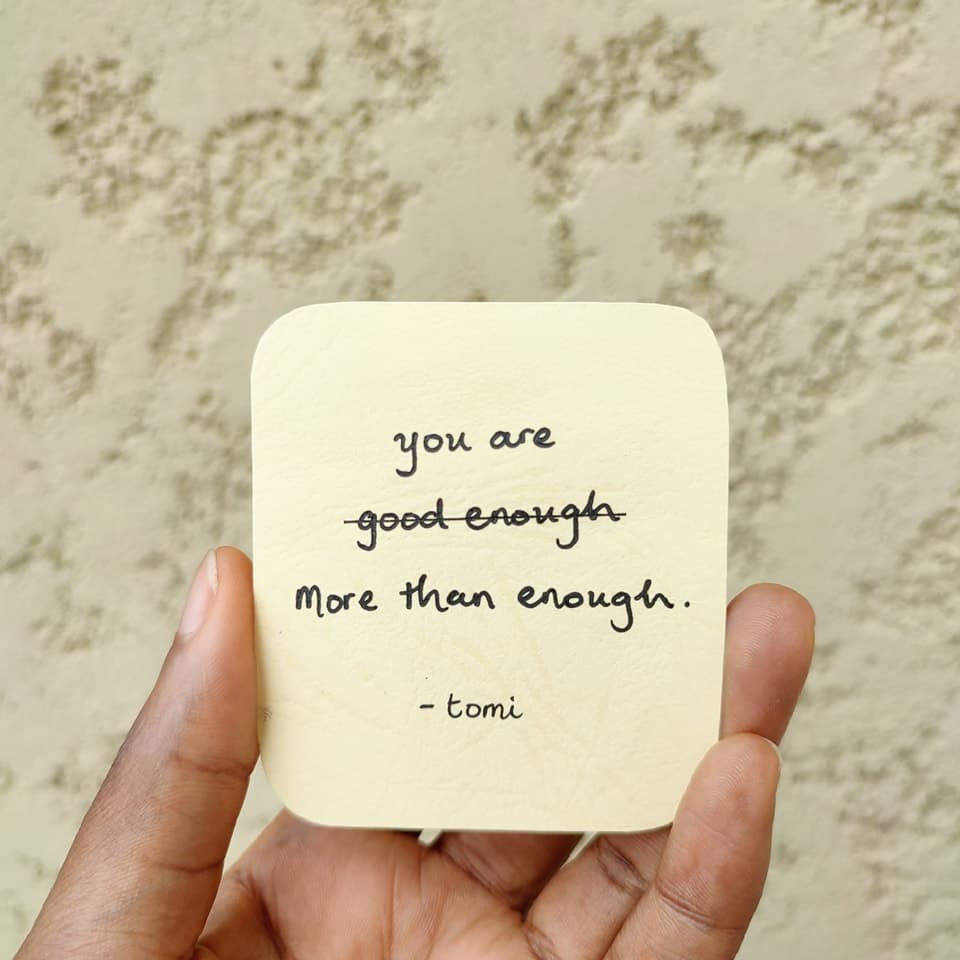 you are
good enough
More than enough.
- tomi